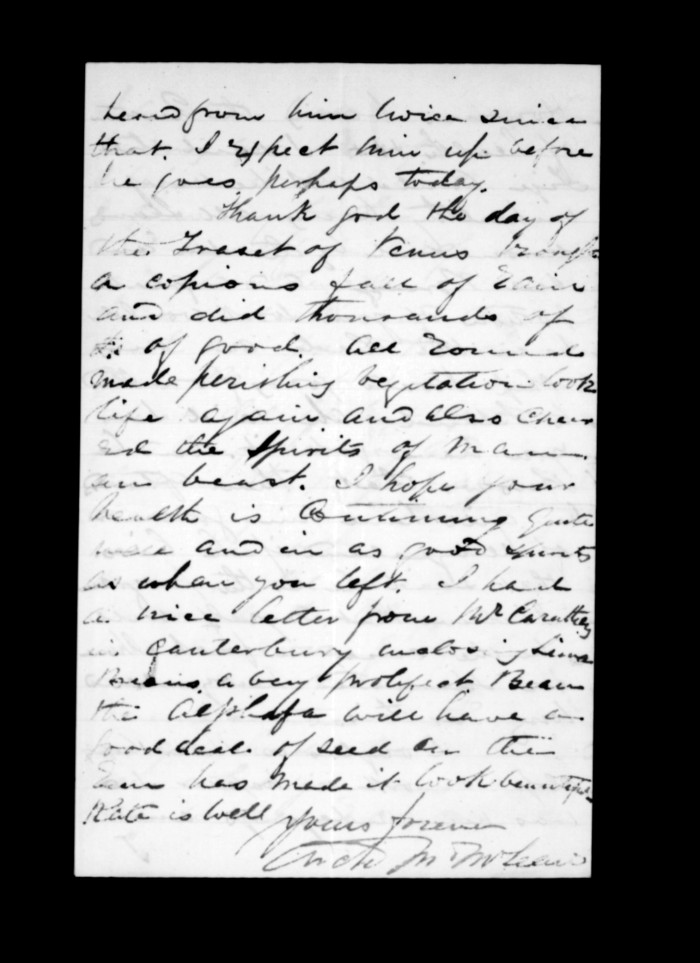 heard from him twice since
that. I Expect him up before
he goes, perhaps today.
Thank god the day of
the Traset of Venus brought
a copious fall of Rain
and did thousands of
£s of good. All round
made perishing vegitation look
life again and also cheer
ed the spirits of man
an beast. I hope your
health is Continuing quite
nice and in as good spirits
as when you left. I had
a nice letter from Mr Caruthers
in Canterbury enclosing Lima
Beans, a very prolifect Bean
the Alphafa will have a
good deal of seed on the
Rain has made it look beautiful
Kate is well yours forever
Archd McLean